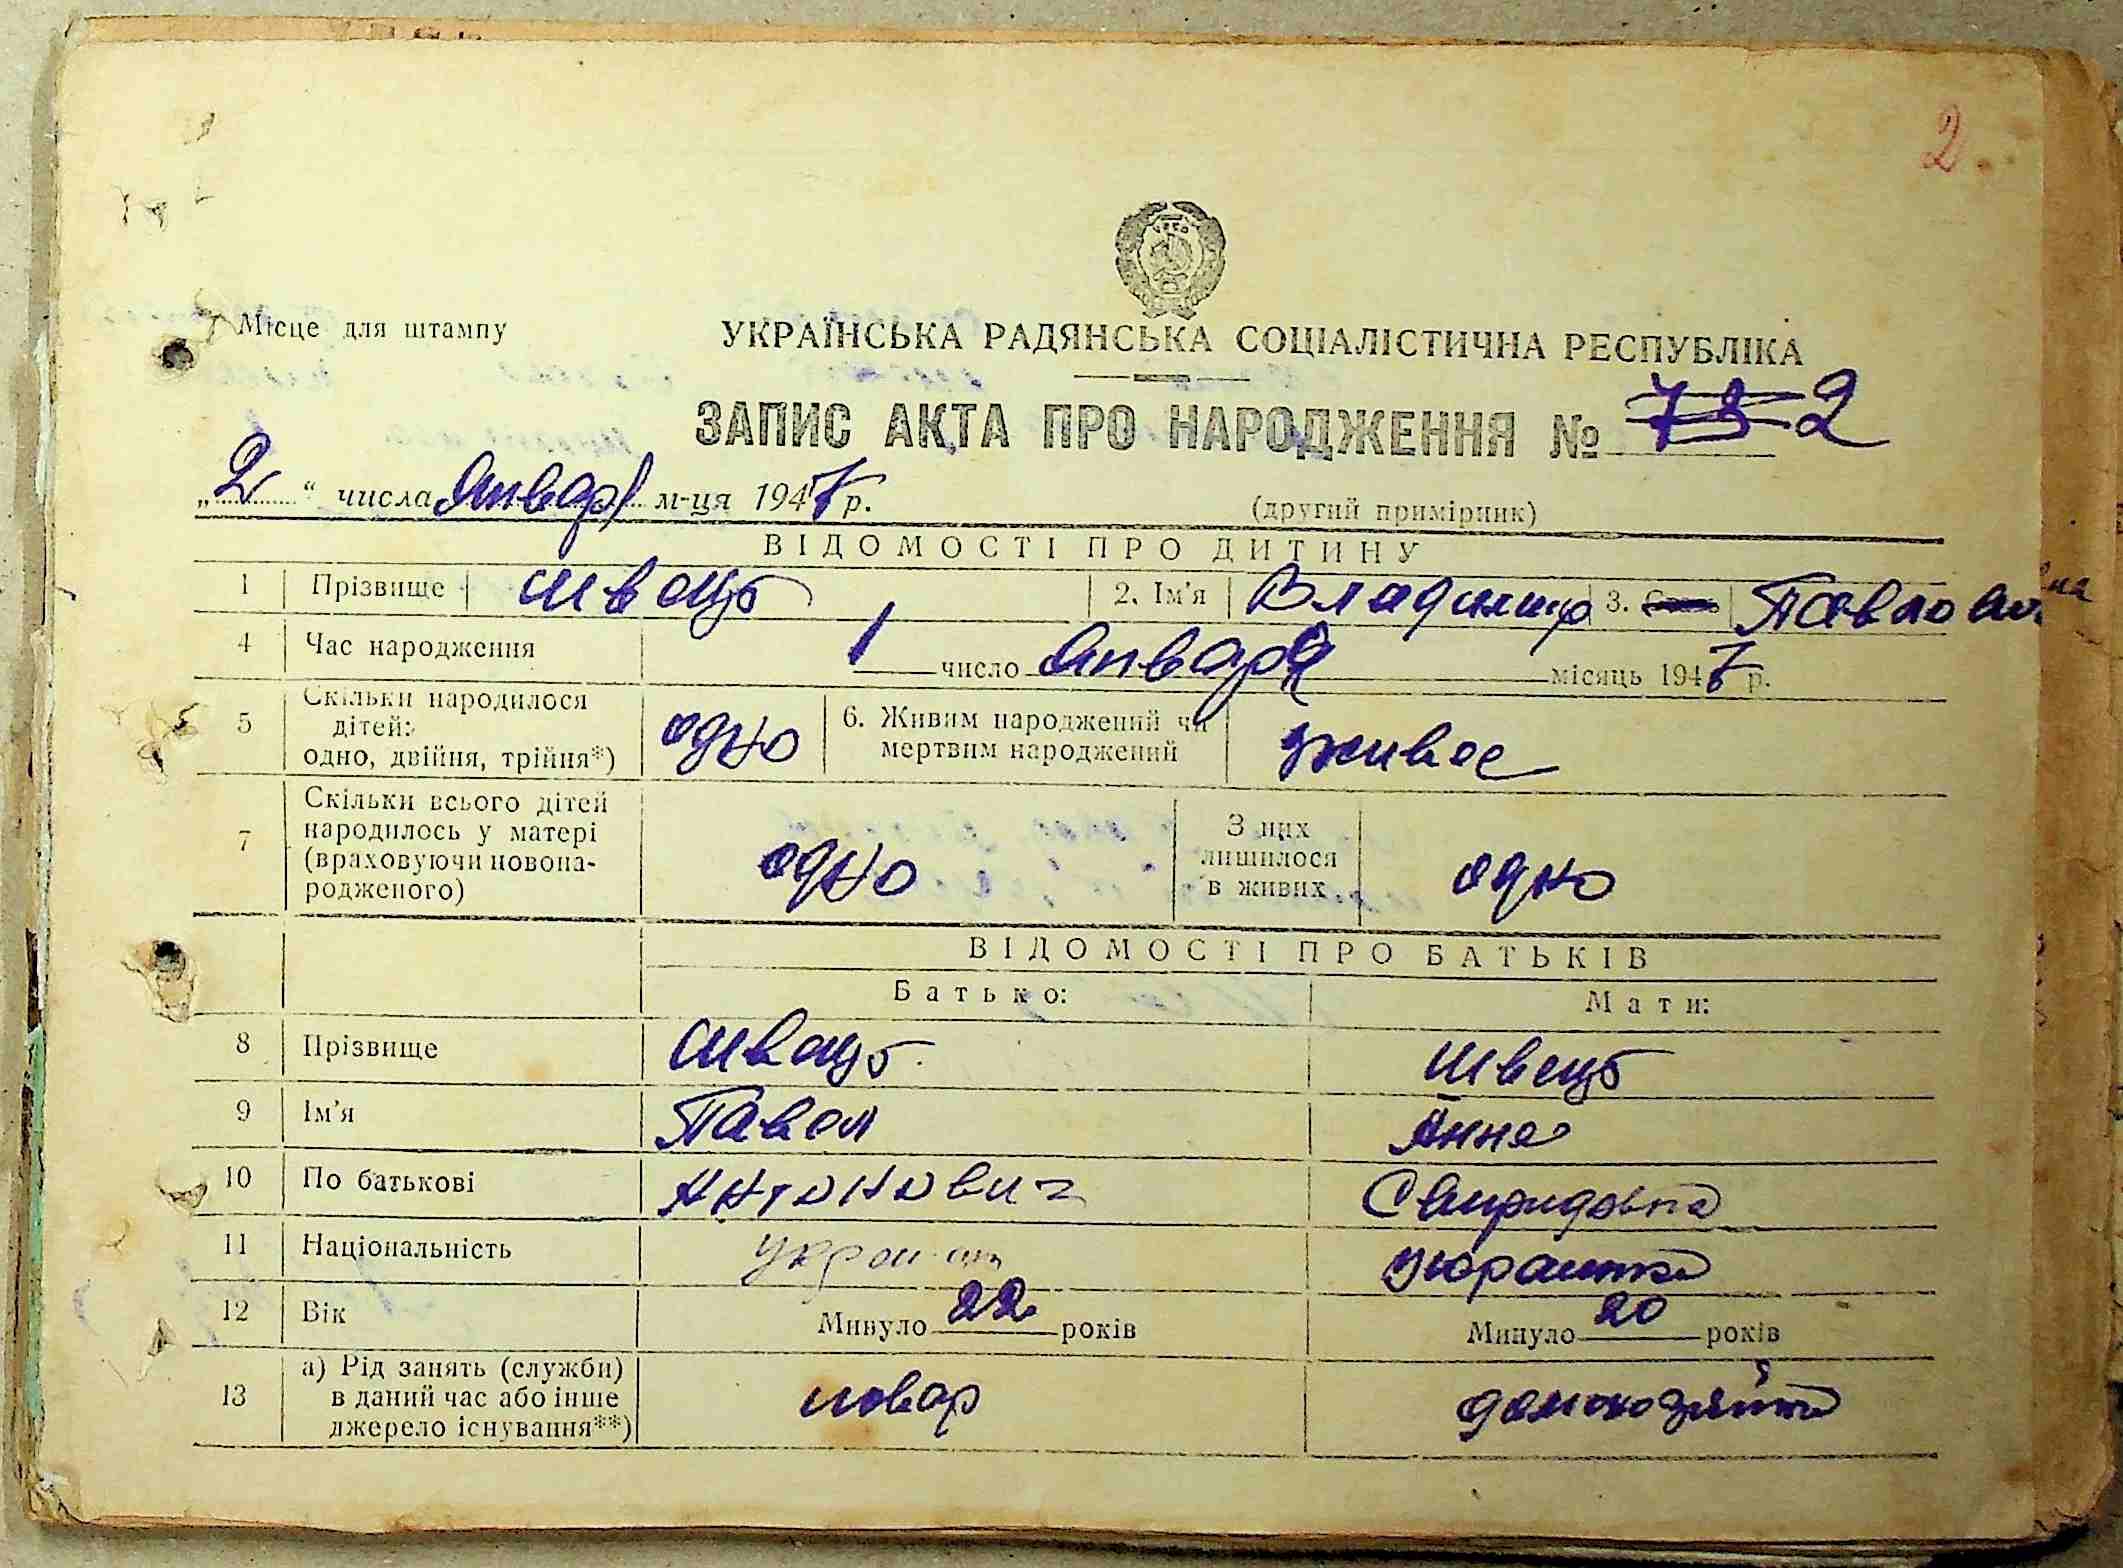 2
Місце для штампу
УКРАЇНСЬКА РАДЯНСЬКА СОЦІАЛІСТИЧНА РЕСПУБЛІКА
ЗАПИС АКТА ПРО НАРОДЖЕННЯ № 73 2
„2“ числа Января м-ця 1947 р.
(другий примірник)
ВІДОМОСТІ ПРО ДИТИНУ
1 Прізвище Швець 2. Ім'я Владимир 3. Павлович
4 Час народження 1 число Января місяць 1947 р.
5 Скільки народилося дітей: одно, двійня, трійня*) одно 6. Живим народжений чи мертвим народжений живое
7 Скільки всього дітей народилось у матері (враховуючи новонародженого) одно З них лишилося в живих одно
ВІДОМОСТІ ПРО БАТЬКІВ
Батько: Мати:
8 Прізвище Швець Швець
9 Ім'я Павел Анна
10 По батькові Антонович Свиридовна
11 Національність украинец украинка
12 Вік Минуло 22 років Минуло 20 років
13 а) Рід занять (служби) в даний час або інше джерело існування**) повар домохозяйка